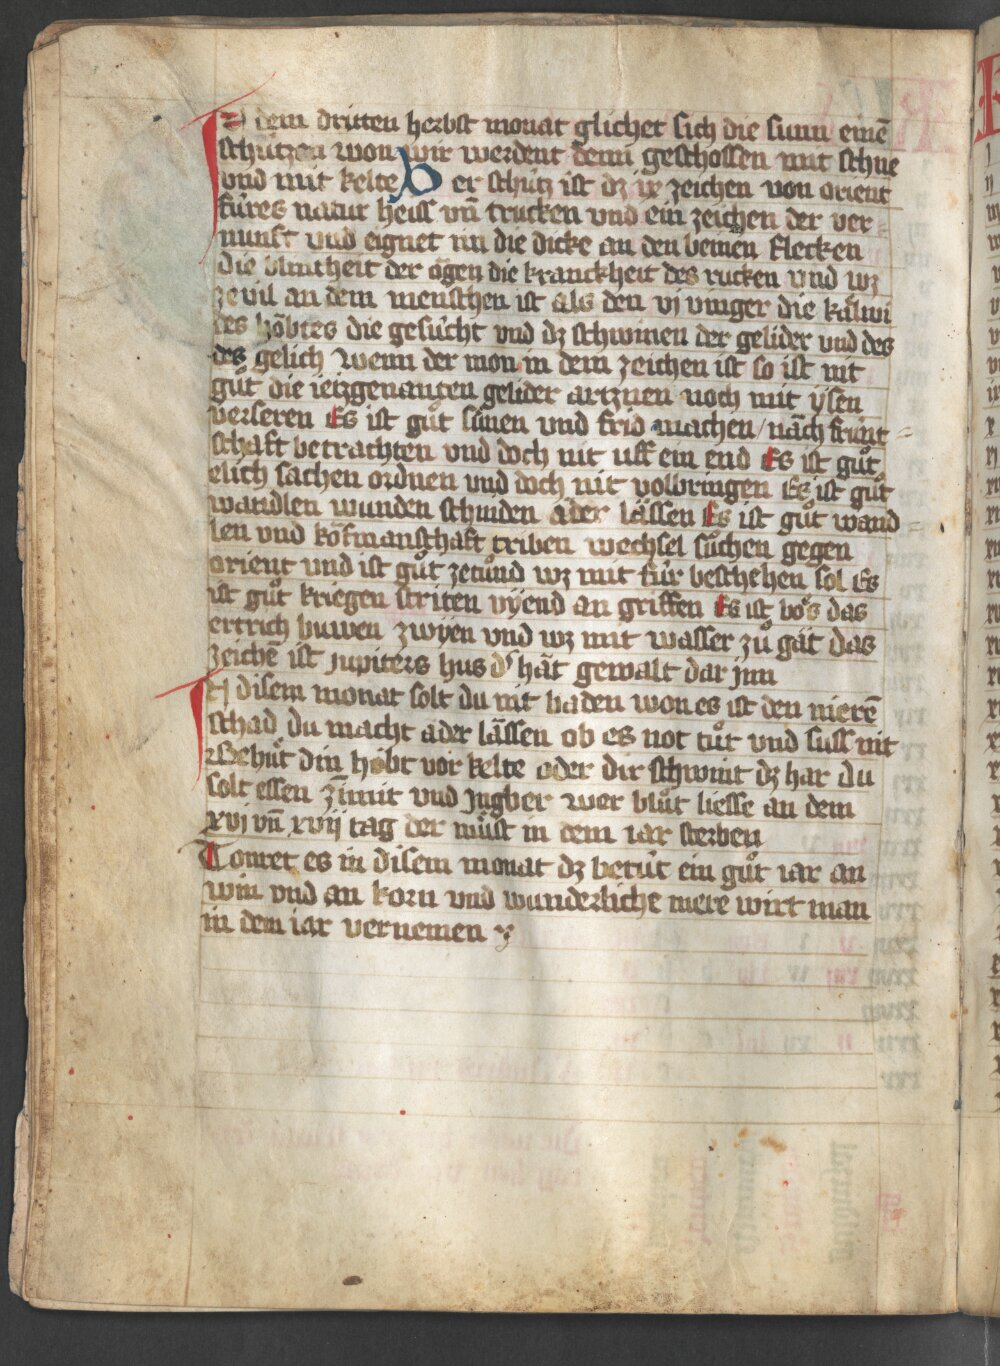 In dem dritten herbst monat glichet sich die sunn einē
schützen won wir werdent denn geschossen mit schne
vnd mit kelte Der schütz ist dz ix zeichen von orient
fúres natur heiss vn̄ trucken vnd ein zeichen der ver
nunft vnd eignet im die dicke an den beinen flecken
die blintheit der ögen die kranckheit des rucken vnd wz
ze vil an dem menschen ist als den vj vinger die kalwi
des höbtes die gesúcht vnd dz schwinen der gelider vnd des
des gelich wenn der mon in dem zeichen ist so ist nit
gůt die ietzgenanten gelider artznen noch mit ysen
verseren Es ist gůt sůnen vnd frid machen / nāch frúnt
schaft betrachten vnd doch nit uff ein end Es ist gůt
elich sachen ordnen vnd doch nit volbringen Es ist gůt
wandlen wunden schniden ader lāssen Es ist gůt wand
len vnd köfmanschaft triben wechsel sůchen gegen
orient vnd ist gůt zetůnd wz mit fúr beschehen sol Es
ist gůt kriegen striten vyend an griffen Es ist bös das
ertrich buwen zwyen vnd wz mit wasser zů gāt das
zeichē ist Jupiters hus d' hāt gewalt dar jnn
In disem monat solt du nit baden won es ist den nierē
schad du macht ader lāssen ob es not tůt vnd suss nit
Behůt din höbt vor kelte oder dir schwint dz har du
solt essen zīmit vnd Jngber wer blůt liesse an dem
xvj vn̄ xvij tag der můst in dem iar sterben
Tonret es in disem monat dz betút ein gůt iar an
win vnd an korn vnd wunderliche mere wirt man
in dem iar vernemen